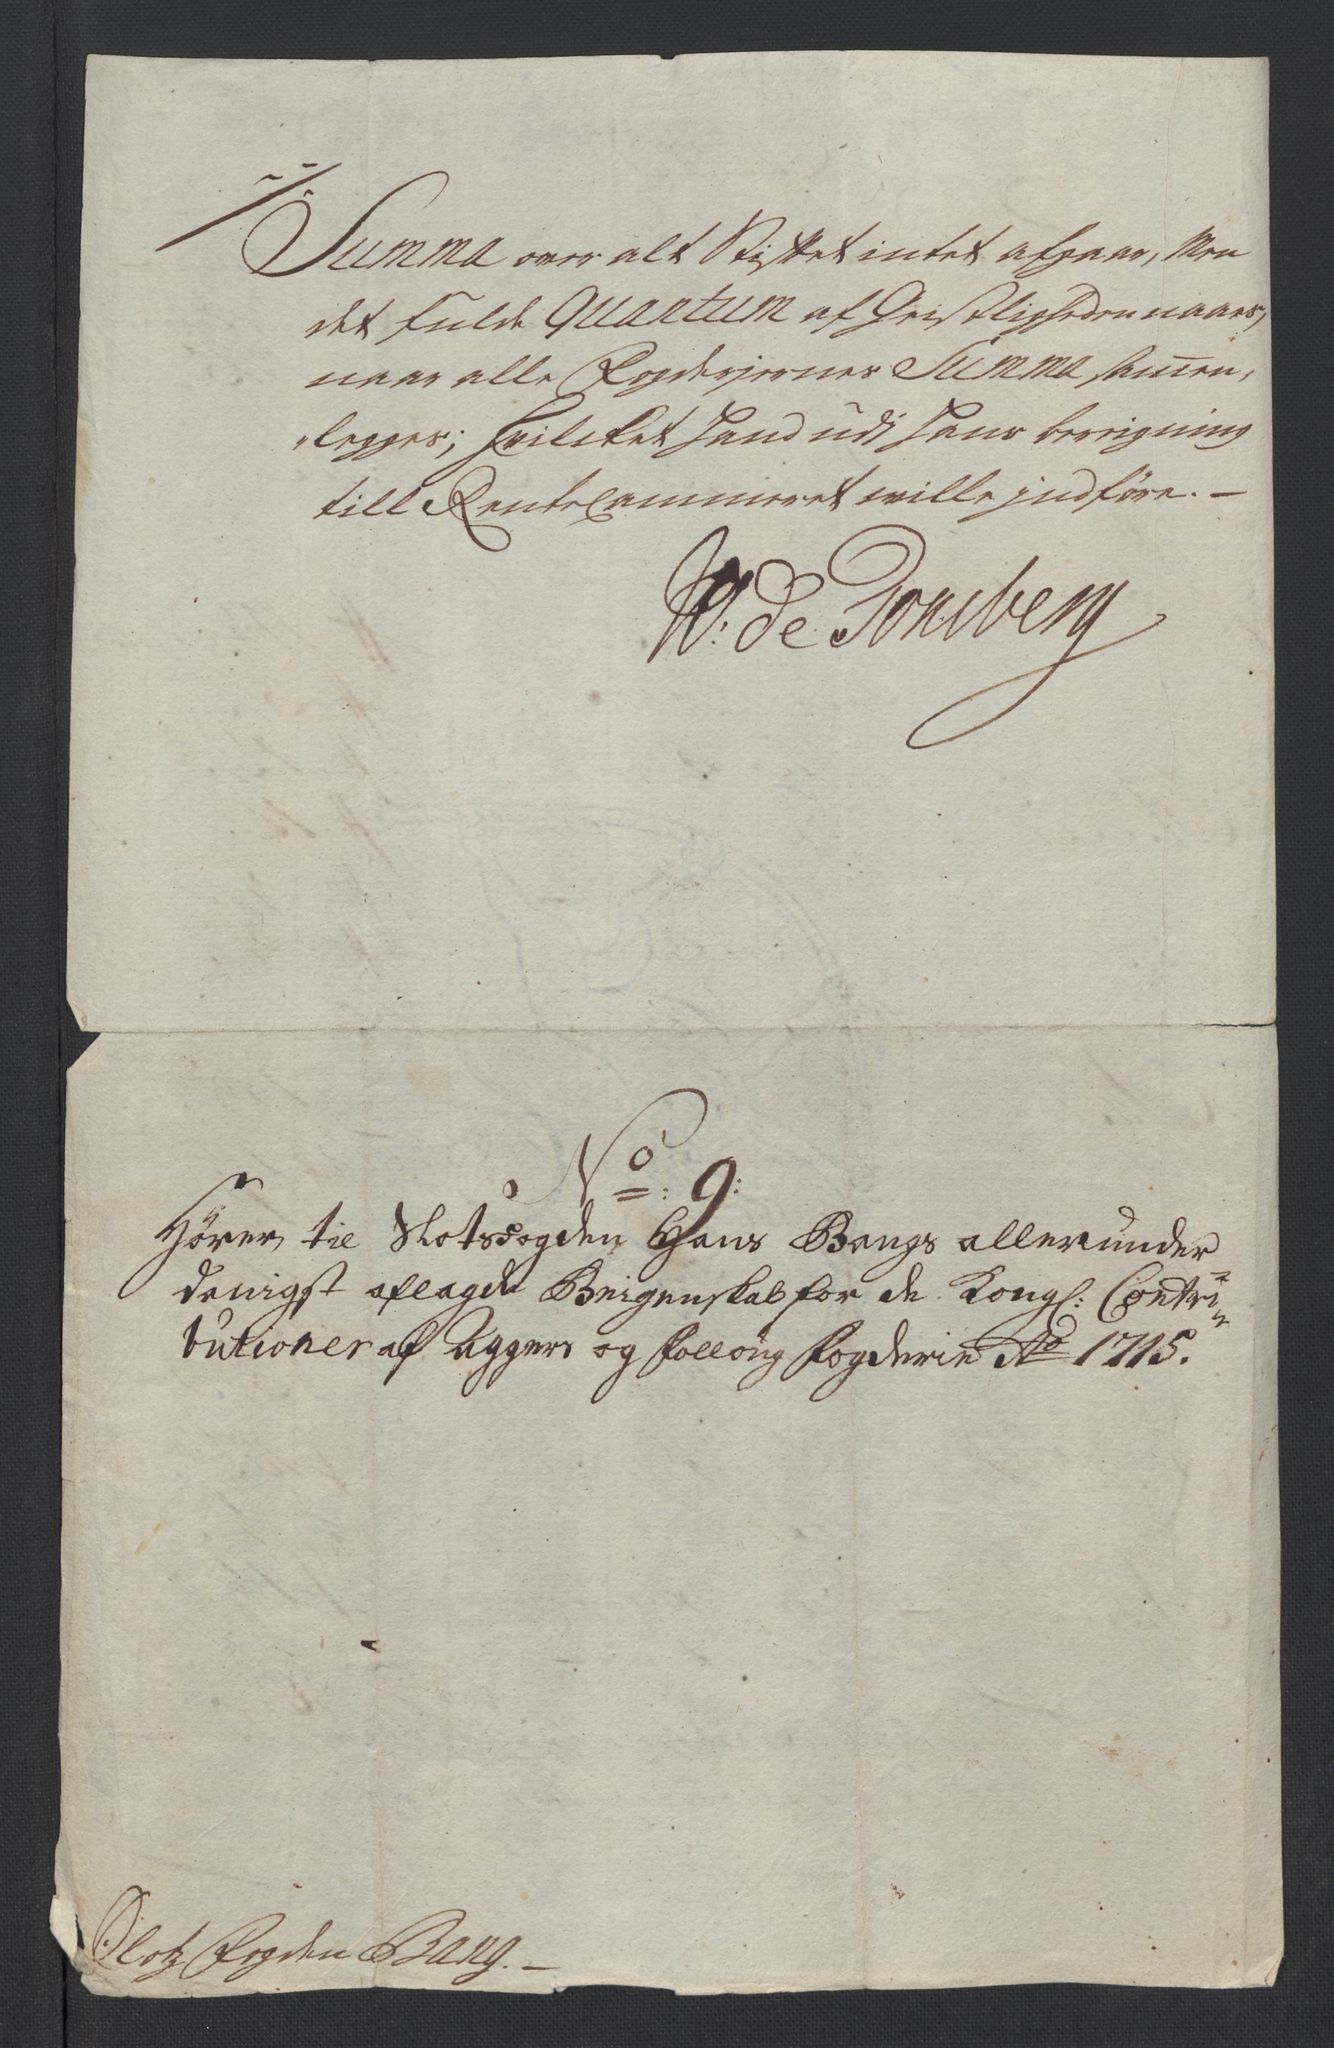 Summa over alt Stiftet intet afgaar, Men
det fulde Quantum af Geistligheden naaes,
naar alle Fogderjernes Summa samen,
„legges; Hvilcket Hand udi Hans beregning
till RenteCammeret wille jndföre. —
W: de Tonsberg
No: 9:
Hörer til Slotsfogden Hans Bangs allerunder
danigst aflagde Reigenskab for de Kongl: Contri„
butioner af Aggers og Follong fogderie Ao 1715.
Slotz Fogden Bang. —